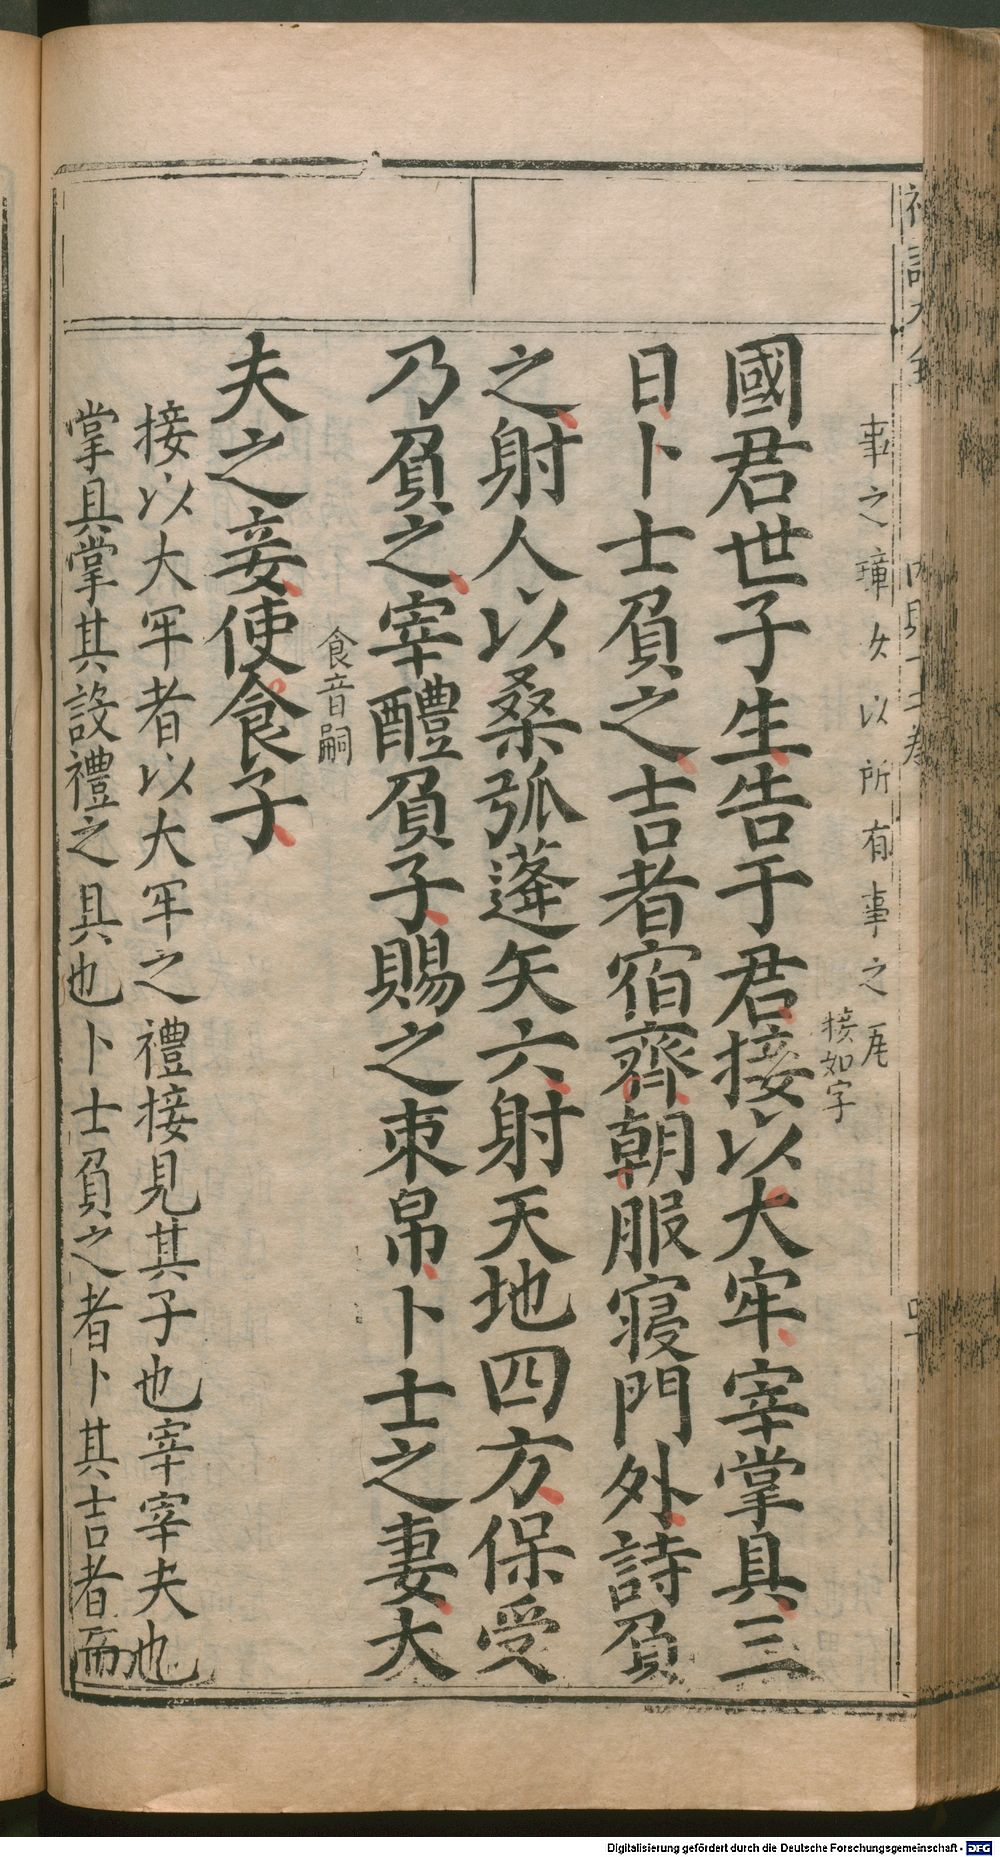 事之璋女以所有事之瓦
國君世子生告于君接以大牢宰掌具三
接如字
日卜士負之吉者宿齊朝服寝門外詩負
之射人以桑弧蓬矢六射天地四方保受
乃負之宰醴負子賜之束帛卜士之妻大
食音嗣
夫之妾使食子
接以大牢者以大牢之禮接見其子也宰宰夫也
掌具掌其設禮之具也卜士負之者卜其吉者而
Digitalisierung gefördert durch die Deutsche Forschungsgemeinschaft - DFG